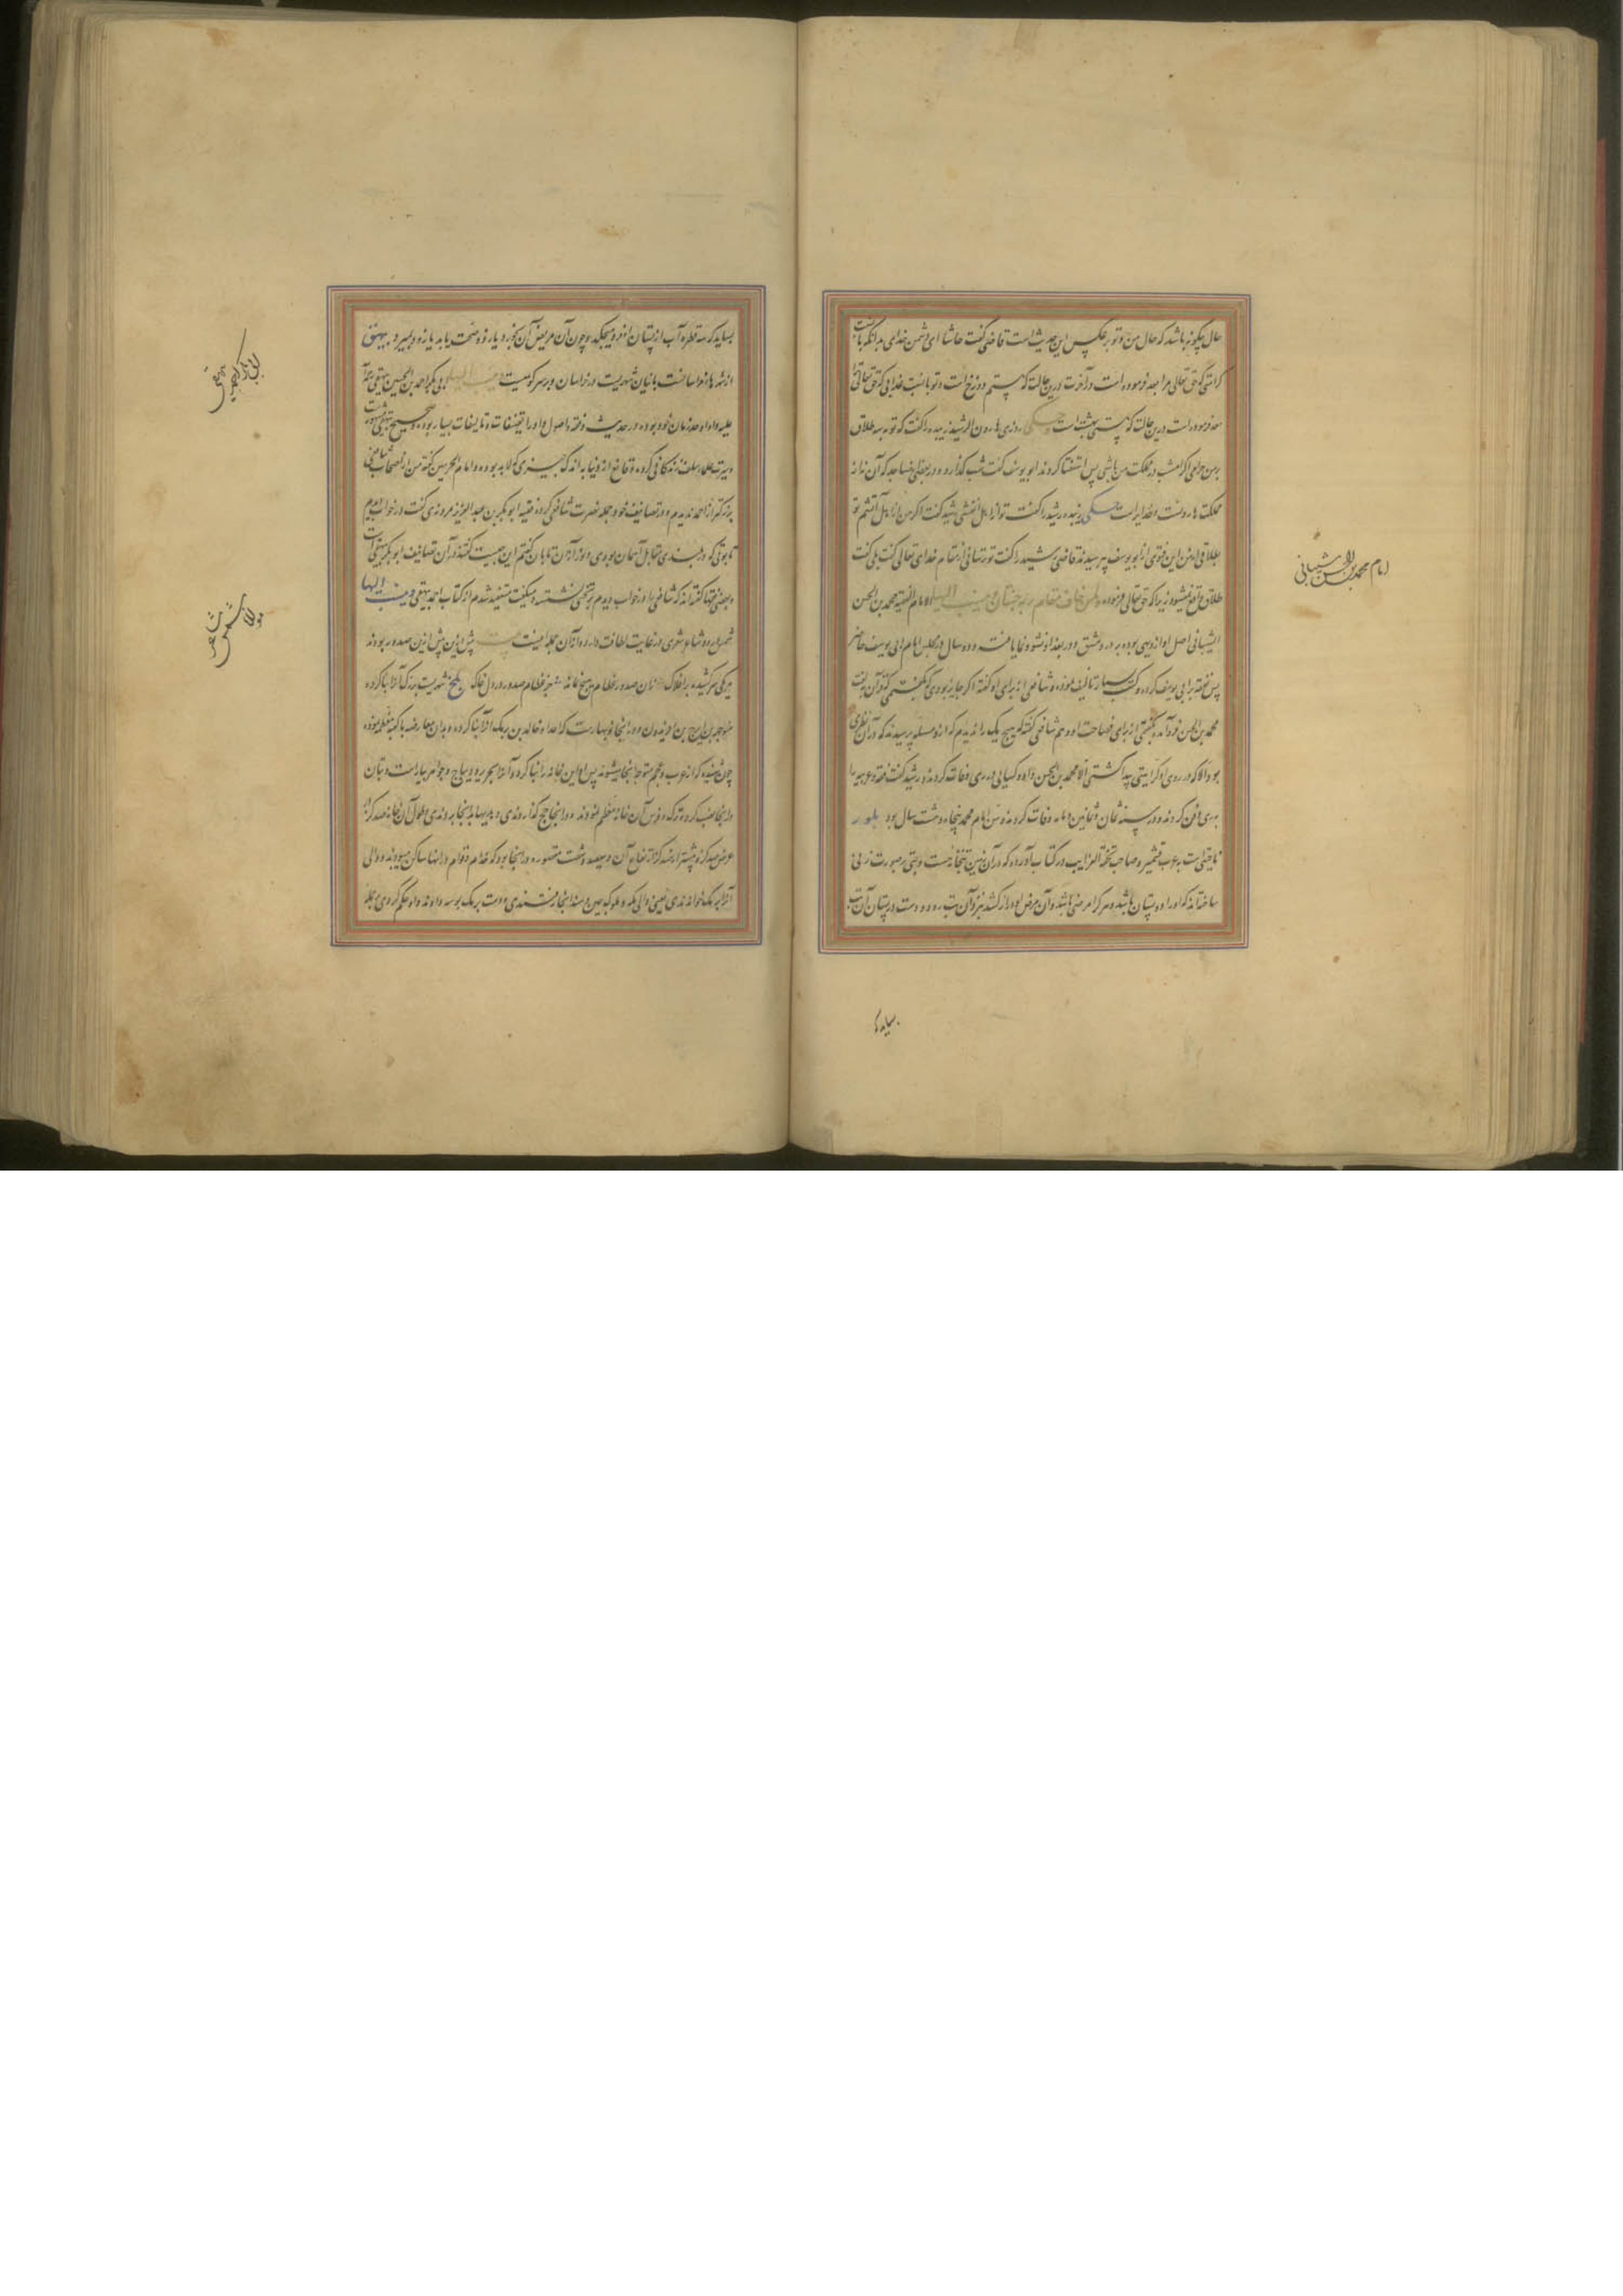 حال چگونه باشد که حال من و تو بر عکس این حدیث است قاضی گفت حاشا ای دشمن خدای بدانکه با نسبت
کرامتی که حق تعالی مرا بعد فرموده است در آخرت درین حالت که هستم دوزخ است و تو با نسبت عذابی که حق تعالی ترا
معد فرموده است درین حالت که هستی بهشت است روزی هارون الرشید زبیده را گفت که تو به سه طلاق
بر من حرامی اگر امشب در مملکت من باشی پس استفتا کردند ابو یوسف گفت شب گذارد در بعضی مساجد که آن نه از
مملکت هارونست و خدایراست زبیده رشید را گفت تو از اهل آتشی رشید گفت اگر من از اهل آتشم تو
بطلاقی از من این فتوی از ابو یوسف پرسیدند قاضی رشید را گفت تو ترسانی از مقام خدای تعالی گفت بلی گفت
طلاق واقع نمیشود زیرا که حق تعالی فرموده ولمن خاف مقام ربه جنتان و ینسب الیها الامام الفقیه محمد بن الحسن
الشیبانی اصل او از دیهی بوده بر در دمشق و در بغداد نشو و نما یافته و دو سال در مجلس امام ابی یوسف حاضر
پس تفقه بر ابی یوسف کرده و کتب بسیار تالیف نموده و شافعی از برای او گفته اگر جایز بودی که گفتمی که قرآن بلغت
محمد بن الحسن فرود آمده بگفتمی از برای فصاحت او و هم شافعی گفته که هیچ یک را ندیدم که از و مسئله پرسیدند که در آن نظری
بود الا که در روی او کراهیتی پیدا گشتی الا محمد بن الحسن و او و کسایی در ری وفات کردند و رشید گفت فقه و عربیه را
بری دفن کردند و در سنه ثمان و ثمانین و مایه وفات کرد و سن امام محمد پنجاه و هشت سال بود
ناحیتی است بقرب کشمیر و صاحب تحفة الغرایب در کتاب آورده که در آن زمین بتخانه ایست و بتی بر صورت زنی
ساخته اند که او را دو پستان باشد و هر کرا مرضی باشد و آن مرض او دراز کشد نزد آن بت رود و دست در پستان آن بت
بمالد که
امام محمد بن الحسن شیبانی
بمالد که سه قطره آب از پستان او فرو میچکد و چون آن مریض آن بخورد یا زود صحت یابد یا زود بمیرد بیهق
بانیان شهریست در خراسان و بر سر کوهیست و ینسب الیها ابی بکر احمد بن الحسین بیهقی رحمة الله
علیه و او اوحد زمان خود بوده در حدیث و فقه و اصول و او را تصنیفات و تالیفات بسیار بوده
و سیرت علماء سلف زندگانی کرده و قانع از دنیا به اندک چیزی که لابد بوده و امام الحرمین گفته من از اصحاب شافعی
بزرگتر از احمد ندیدم و در تصانیف خود جمله نصرت شافعی کرده فقیه ابو بکر بن عبد العزیز مروزی گفت در خواب دیدم
تابوتی که در بلندی مقابل آسمان بودی و نور از آن تابان گفتم این چیست گفتند در آن تصانیف ابو بکر بیهقی است
و بعضی فقها گفته اند که شافعی را در خواب دیدم بر تختی نشسته و میگفت مستفید شدم از کتاب احمد بیهقی و ینسب الیها
شمس و شعری در غایت لطافت دارد و از آن جمله اینست پیش ازین صدور بودند
هر یکی سر کشیده بر افلاک زان صدور عظام هیچ نماند جز عظام صدور در دل خاک بلخ شهریست بزرگ آنرا بنا کرده
منوچهر بن ایرج بن افریدون و در اینجا نوبهارست که اجداد خالد بن برمک آنرا بنا کرده و بدان معارضه با کعبه معظمه نموده
چون شنیدند که از عرب و عجم متوجه انجا میشوند پس او این خانه را بنا کرد و آنرا بحریر و دیباج و جواهر بیاراست و بتان
در انجا نصب کرد و ترک و فرس آن خانه معظم نمودند و در انجا حج گذاردندی و هدیها بدانجا بردندی و طول آن خانه صد گز
عرض صد گز و بیشتر از صد گز ارتفاع آن و سیصد و شصت مقصوره در انجا بود که خدام و قوام در انها ساکن میبودند و والی
آنرا برمک خواندندی یعنی والی مکه و ملوک چین و هند انجا آمدندی و دست برمک بوسه دادند و او حکم کردی در جمله
ابی بکر احمد بیهقی
مولانا شمس شاعر